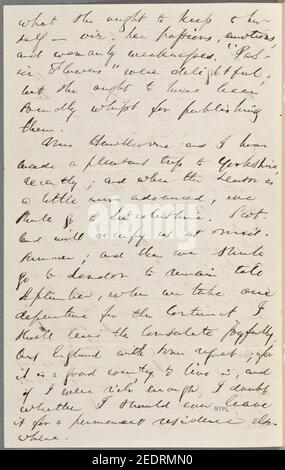 what she ought to keep to her-
self — viz. her passions, emotions,
and womanly weaknesses. "Pas-
sion Flowers" were delightful;
but she ought to have been
soundly whipt for publishing
them.
Mrs. Hawthorne and I have
made a pleasant trip to Yorkshire,
recently; and when the season is
a little more advanced, we
shall go to Lincolnshire. Scot-
land will occupy us at mid-
summer; and then we shall
go to London to remain till
September, when we take our
departure for the Continent. I
shall leave the Consulate joyfully,
but England with some regret; for
it is a good country to live in; and
if I were rich enough, I doubt
whether I should ever leave
it for a permanent residence else-
where.
NYPL
alamy
alamy
Image ID: 2EDRMN0
www.alamy.com